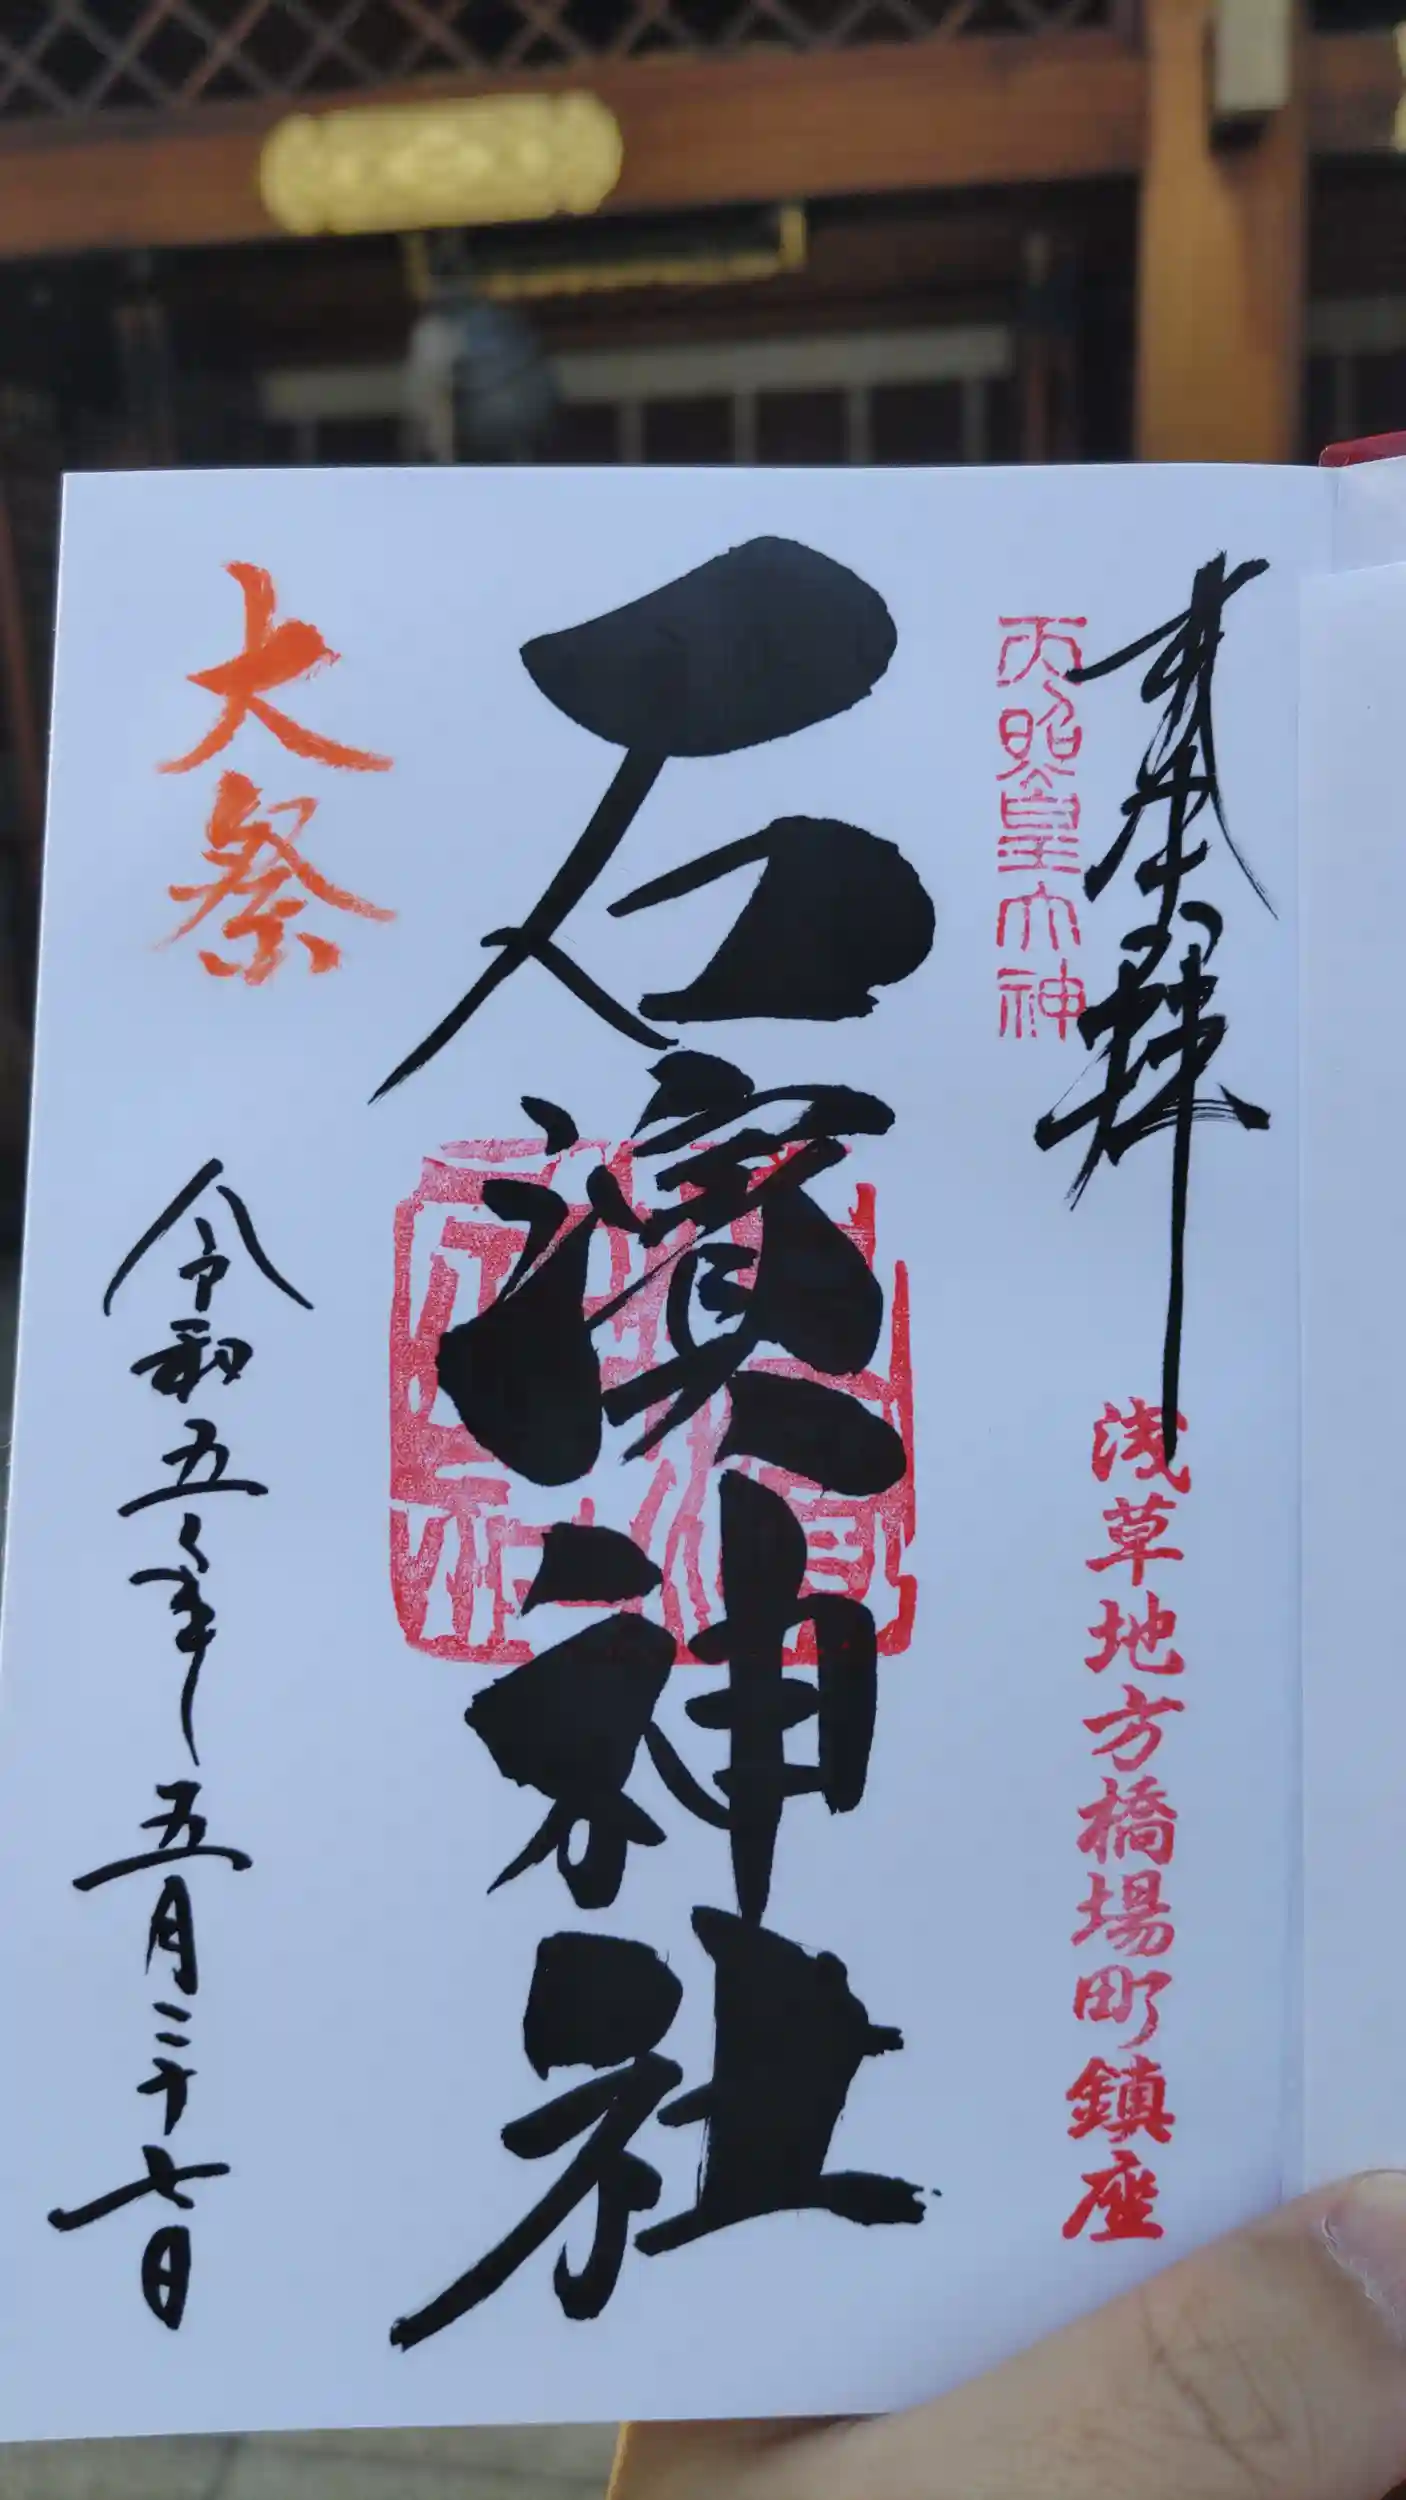 奉拝
浅草地方橋場町鎮座
天照皇大神
石濱神社
大祭
令和五年五月二十七日